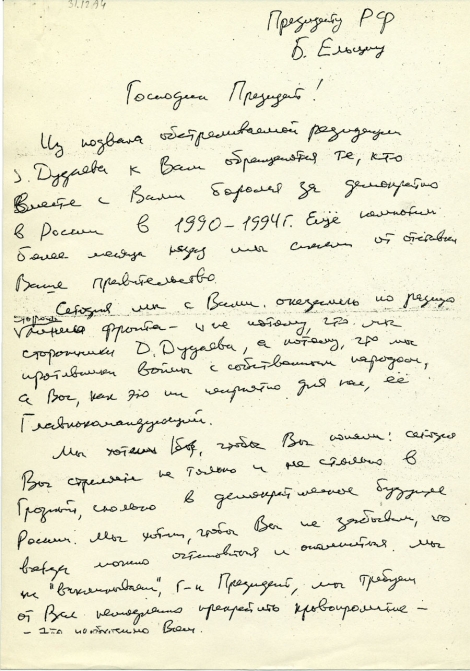 31.12.94
Президенту РФ
Б. Ельцину
Господин Президент!
Из подвала обстреливаемой резиденции
Дудаева к Вам обращаются те, кто
вместе с Вами боролся за демократию
в России в 1990-1994г. Ещё
более месяца назад мы спасали от отставки
Ваше правительство.
Сегодня мы с Вами оказались по разные
стороны
линии фронта - и не потому, что мы
сторонники Д. Дудаева, а потому, что мы
противники войны с собственным народом,
а Вы, как это ни неприятно для нас, её
Главнокомандующий.
Мы хотели бы, чтобы Вы поняли: сегодня
Вы стреляете не только и не столько в
Грозный, сколько в демократическое будущее
России. Мы хотим, чтобы Вы не забывали, что
всегда можно остановиться и опомниться. Мы
не г-н Президент, мы требуем
от Вас немедленно прекратить кровопролитие -
- это Вам.